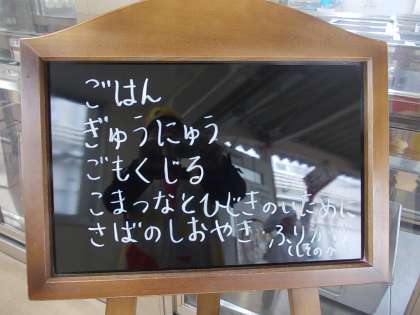 ごはん
ぎゅうにゅう
ごもくじる
こまつなとひじきのいために
さばのしおやき・ふりかけ
(しそのか